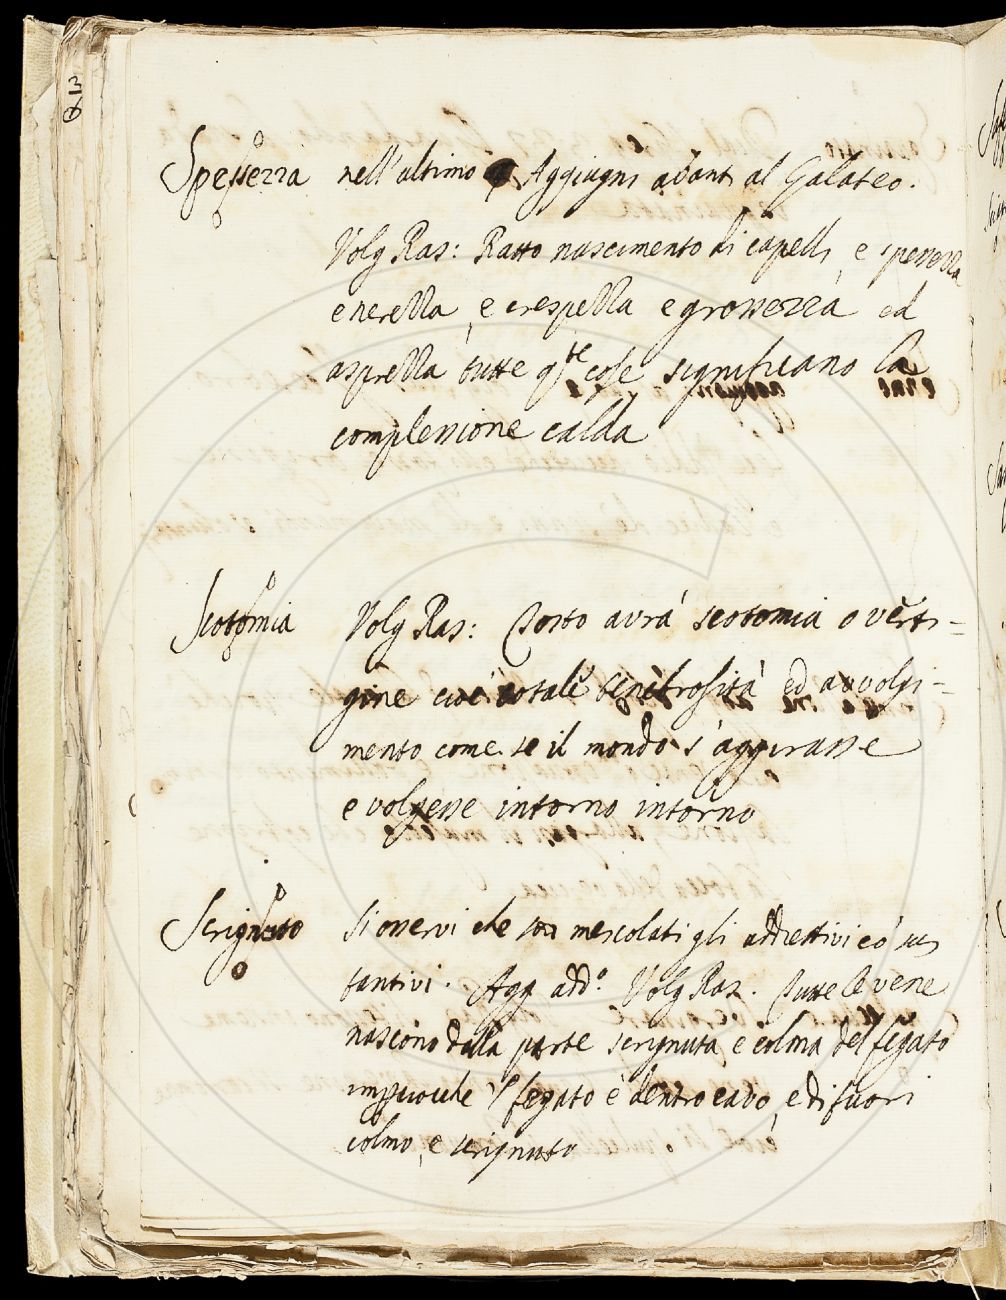 Spessezza nell'ultimo Aggiugni avanti al Galateo.
Volg Ras: Ratto nascimento di capelli, e spessezza
e nerezza, e crespezza e grossezza ed
asprezza tutte qste cose significano la
complessione calda
Scotomia Volg Ras: Tosto avrà scotomia o verti=
gine cioè cotale tenebrosità ed avvolgi=
mento come se il mondo s'aggirasse
e volgesse intorno intorno
Scrignuto Si osservi che son mescolati gli addiettivi co' sus
tantivi. Agg add.o Volg Ras. Tutte le vene
nascono dalla parte scrignuta e colma del fegato
impciocche 'l fegato è dentro cavo, e di fuori
colmo, e scrignuto